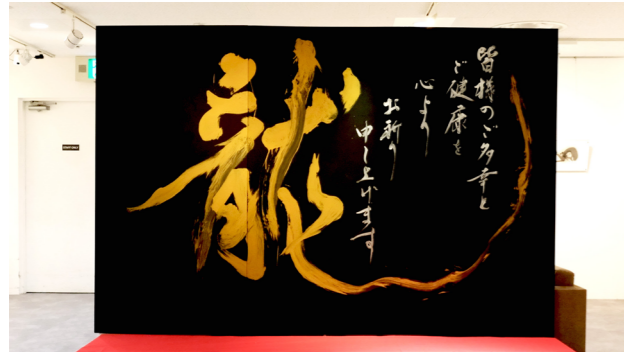 龍
皆様のご多幸と
ご健康を
心より
お祈り
申し上げます